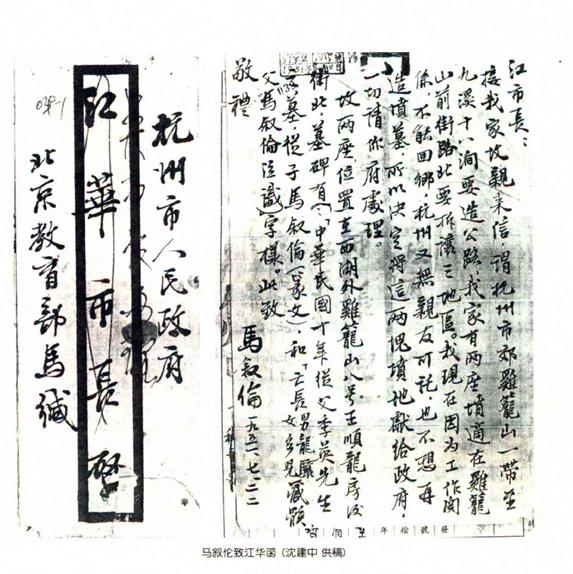 杭州市人民政府
江華市長啓
北京教育部馬緘
江市長：
接我家坟親来信，謂杭州市郊雞籠山一帶至
九溪十八澗要造公路，我家有两座墳適在雞籠
山前街路北要拆讓之地區。我現在因为工作関
係不能回鄉，杭州又無親友可託，也不想再
造墳墓，所以决定将這两塊墳地献给政府，
一切請你府處理。
坟两座位置在西湖外雞籠山八号王順龍房後
街北，墓碑有「中華民國十年從父季英先生
之墓，從子馬叙倫」(篆文)和「亡長男龍驤女兒藏骸
父馬叙倫泣識」字樣。此致
敬禮
馬叙倫 一九五一、七、二二
马叙伦致江华函（沈建中 供稿）